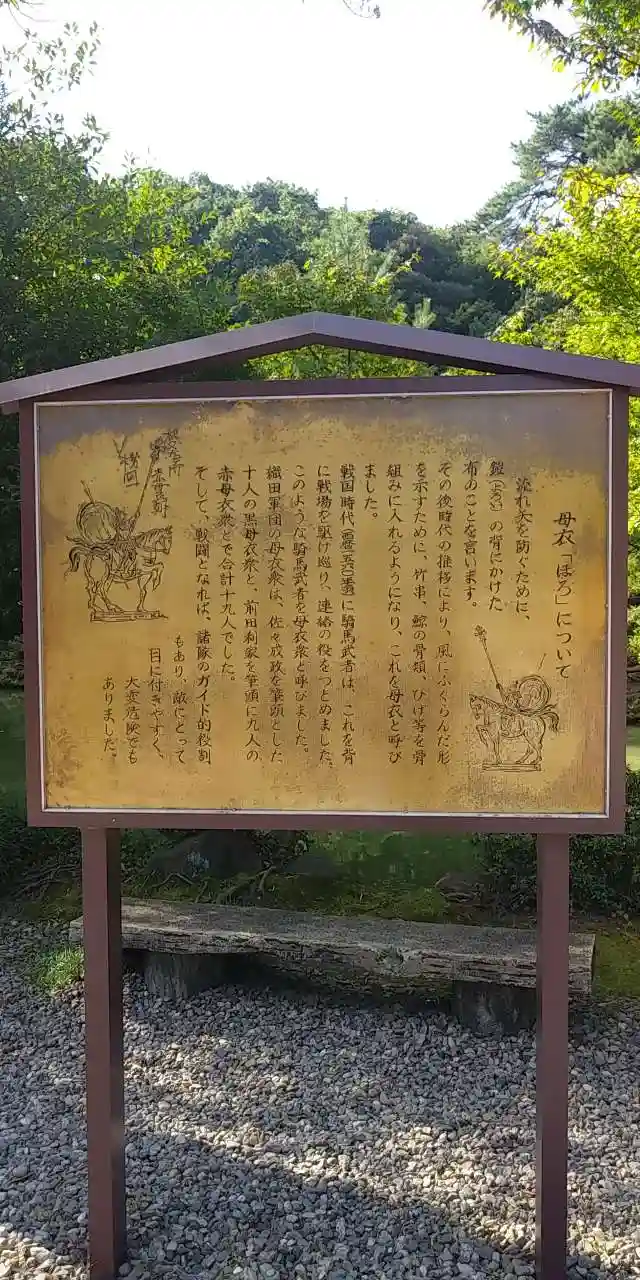 母衣「ほろ」について
流れ矢を防ぐために、
鎧(よろい)の背にかけた
布のことを言います。
その後時代の推移により、風にふくらんだ形
を示すために、竹串、鯨の骨類、ひげ等を骨
組みに入れるようになり、これを母衣と呼び
ました。
戦国時代に騎馬武者は、これを背
に戦場を駆け巡り、連絡の役をつとめました。
このような騎馬武者を母衣衆と呼びました。
織田軍団の母衣衆は、佐々成政を筆頭とした
十人の黒母衣衆と、前田利家を筆頭に九人の
赤母衣衆とで合計十九人でした。
そして、戦闘となれば、諸隊のガイド的役割
もあり、敵にとって
目に付きやすく、
大変危険でも
ありました。